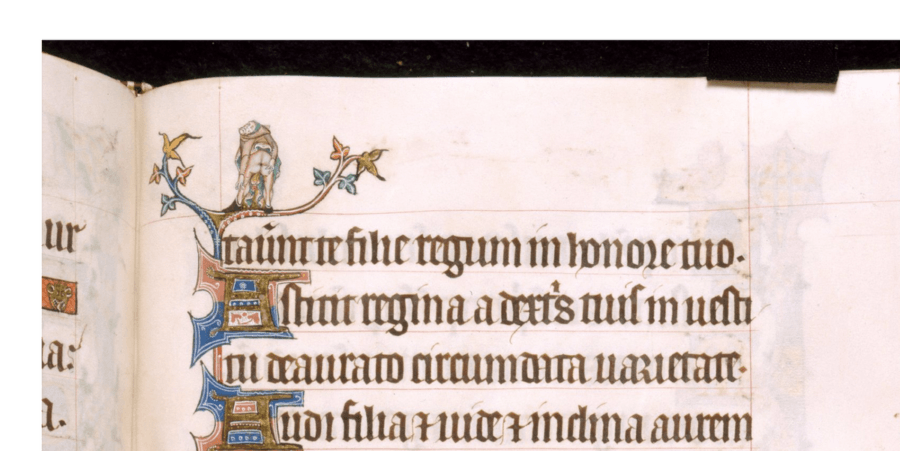 ur
a:
a.
taūnt te filie regum in honore tuo.
Astitit regina a dextrˢ tuis in uesti
tu deaurato circumdata uarietate.
Audi filia ⁊ uide ⁊ inclina aurem